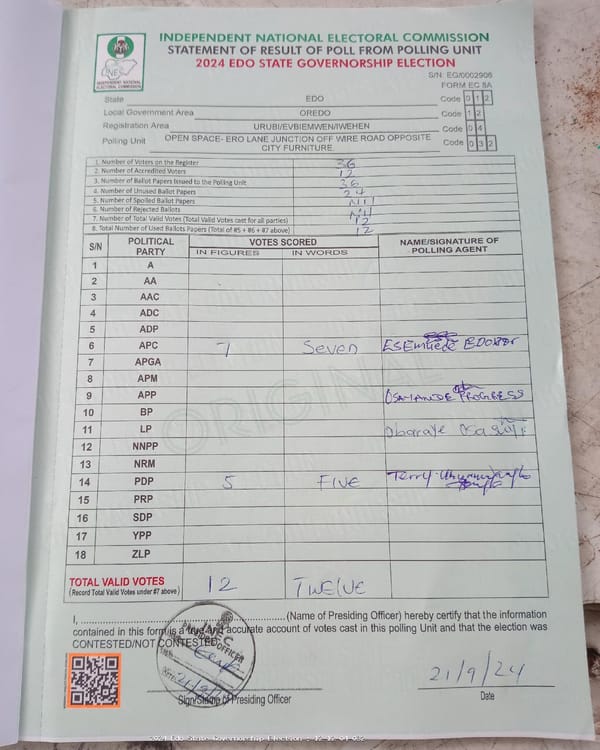 INDEPENDENT NATIONAL ELECTORAL COMMISSION
STATEMENT OF RESULT OF POLL FROM POLLING UNIT
2024 EDO STATE GOVERNORSHIP ELECTION
S/N: EG/0002906
FORM EC 8A
INDEPENDENT NATIONAL ELECTORAL COMMISSION
State EDO Code 0 1 2
Local Government Area OREDO Code 1 2
Registration Area URUBI/EVBIEMWEN/IWEHEN Code 0 4
Polling Unit OPEN SPACE- ERO LANE JUNCTION OFF WIRE ROAD OPPOSITE CITY FURNITURE. Code 0 3 2
1. Number of Voters on the Register 36
2. Number of Accredited Voters 12
3. Number of Ballot Papers Issued to the Polling Unit 36
4. Number of Unused Ballot Papers 24
5. Number of Spoiled Ballot Papers Nil
6. Number of Rejected Ballots Nil
7. Number of Total Valid Votes (Total Valid Votes cast for all parties) 12
8. Total Number of Used Ballots Papers (Total of #5 + #6 + #7 above) 12
S/N POLITICAL PARTY VOTES SCORED NAME/SIGNATURE OF POLLING AGENT
IN FIGURES IN WORDS
1 A
2 AA
3 AAC
4 ADC
5 ADP
6 APC 7 Seven
7 APGA
8 APM
9 APP PROGRESS
10 BP
11 LP
12 NNPP
13 NRM
14 PDP 5 FIVE Terry
15 PRP
16 SDP
17 YPP
18 ZLP
ORIGINAL
TOTAL VALID VOTES 12 TWELVE
(Record Total Valid Votes under #7 above)
I, (Name of Presiding Officer) hereby certify that the information
contained in this form is a true and accurate account of votes cast in this polling Unit and that the election was
CONTESTED/NOT CONTESTED.
PRESIDING OFFICER
21/9/24
Sign/Stamp of Presiding Officer Date
2024 Edo State Governorship Election - 12-12-04-032